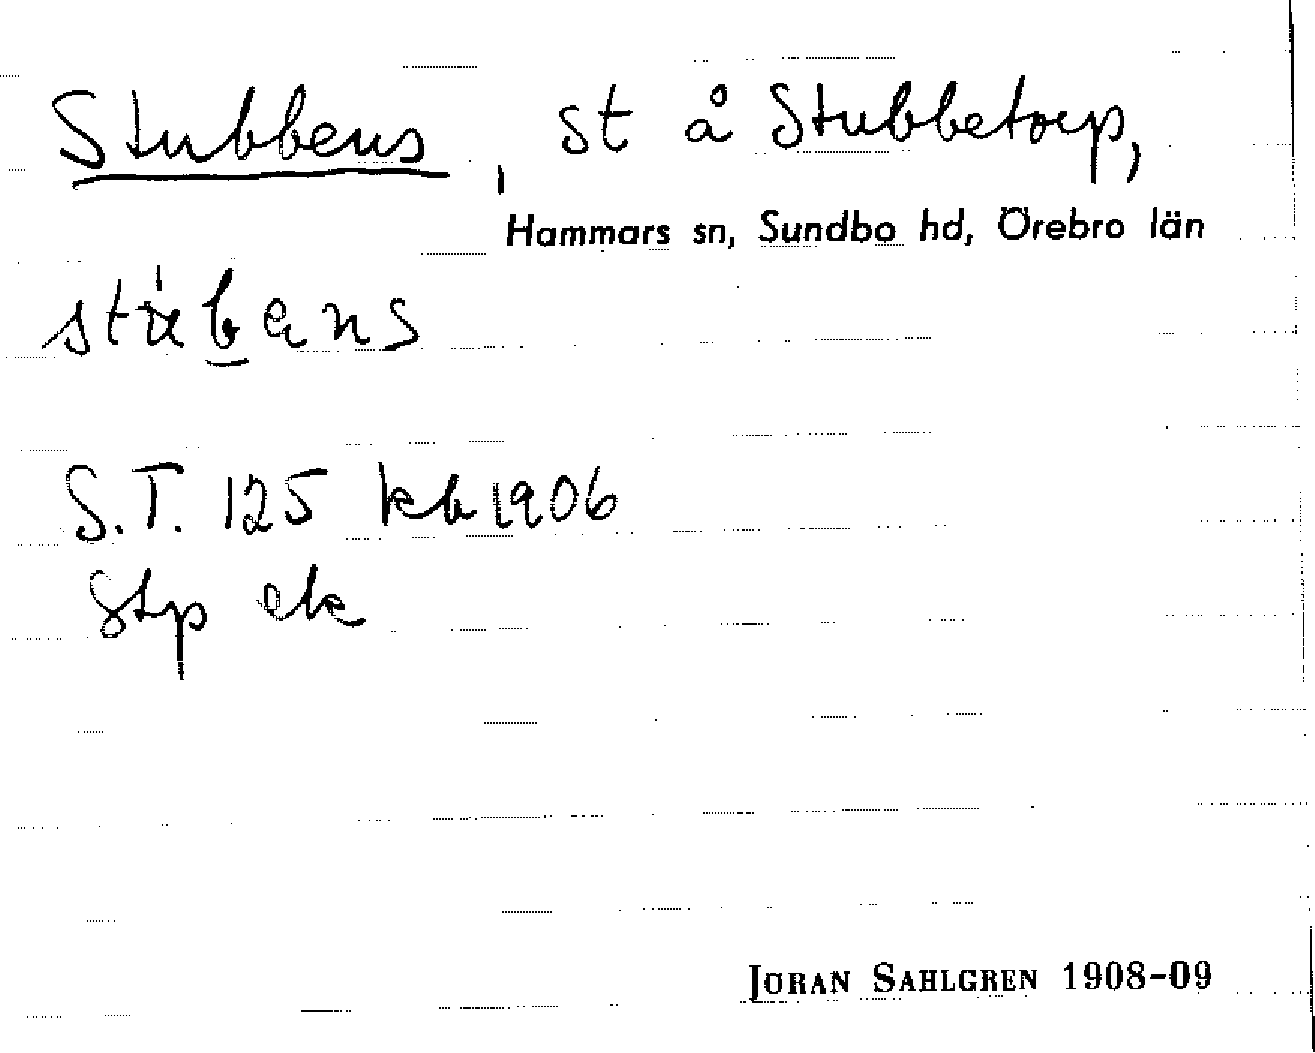 Stubbens, st å Stubbetorp,
Hammars sn, Sundbo hd, Örebro län
S.T. 125 kb 1906
Stp ek
JÖRAN SAHLGREN 1908-09